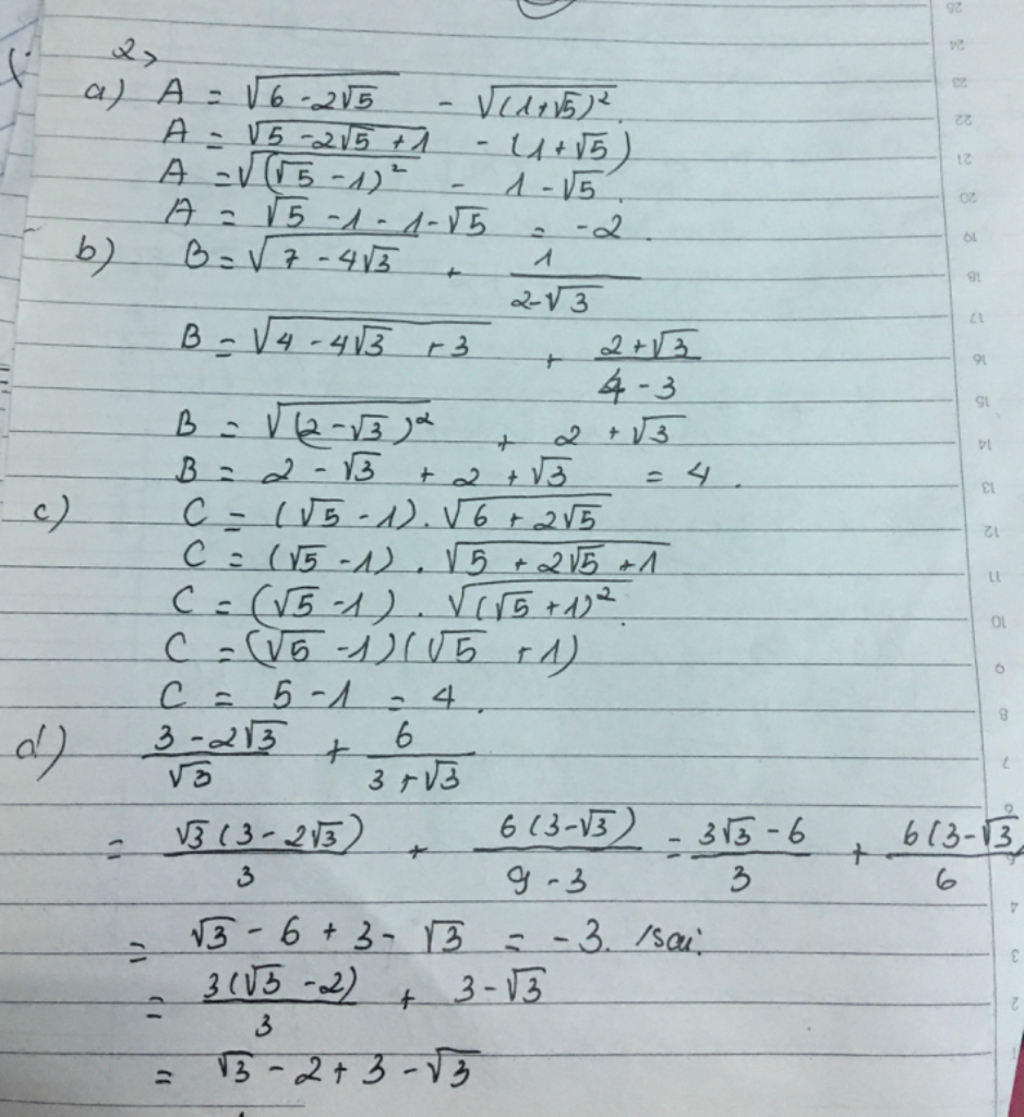 2>
a) A = √(6 - 2√5) - √((1+√5)²)
A = √(5 - 2√5 + 1) - (1+√5)
A = √((√5 - 1)²) - 1 - √5.
A = √5 - 1 - 1 - √5 = -2.
b) B = √(7 - 4√3) + 1/(2-√3)
B = √(4 - 4√3 + 3) + (2+√3)/(4 - 3)
B = √((2-√3)²) + 2 + √3
B = 2 - √3 + 2 + √3 = 4.
c) C = (√5 - 1). √(6 + 2√5)
C = (√5 - 1). √(5 + 2√5 + 1)
C = (√5 - 1). √((√5 + 1)²).
C = (√5 - 1)(√5 + 1)
C = 5 - 1 = 4.
d) (3 - 2√3)/√3 + 6/(3 + √3)
= √3(3 - 2√3)/3 + 6(3-√3)/(9 - 3) = (3√3 - 6)/3 + 6(3-√3/6
= √3 - 6 + 3 - √3 = -3. /sai:
= 3(√3 - 2)/3 + 3 - √3
= √3 - 2 + 3 - √3